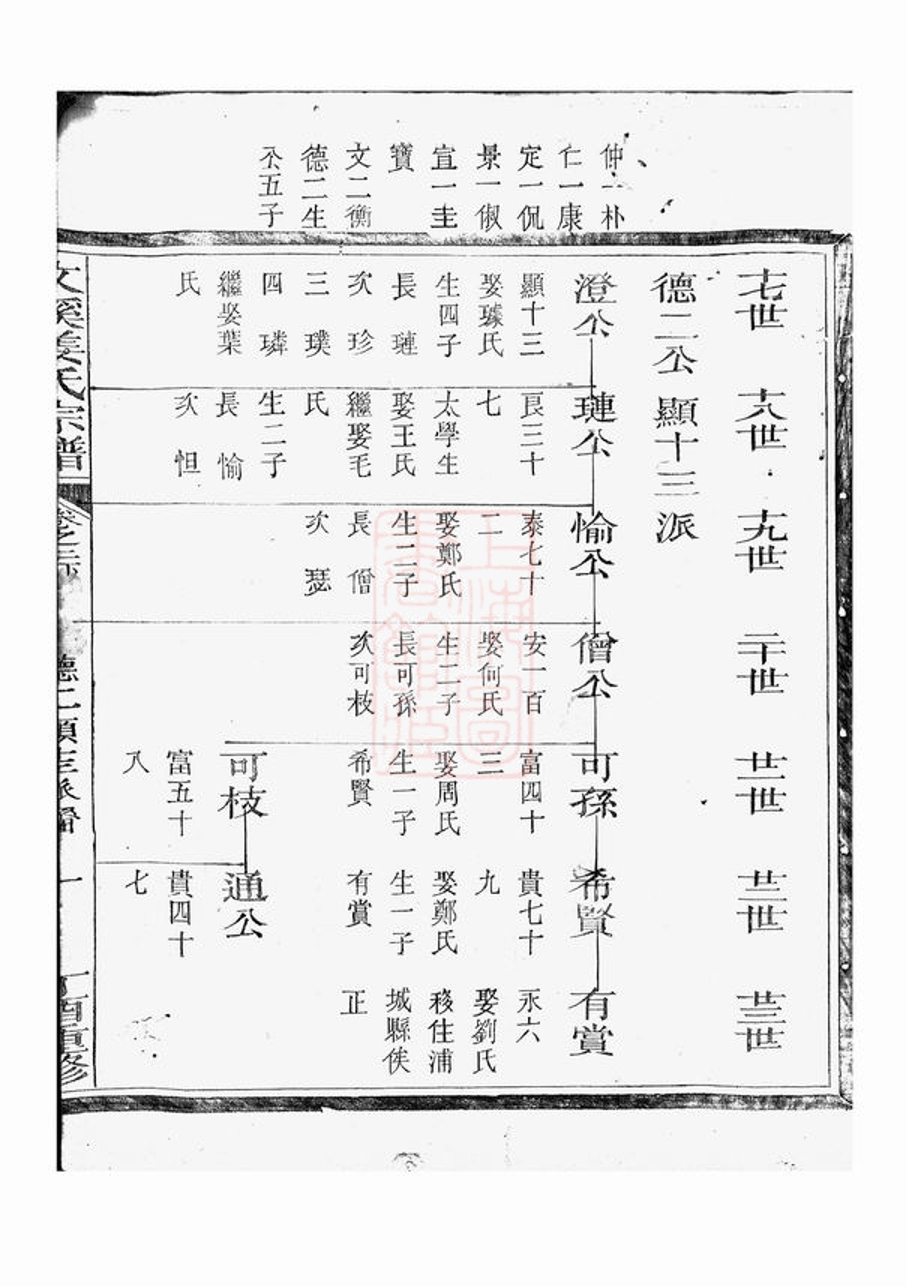 仲一朴
仁一康
定一侃
景一俶
宣一圭
寶
文二衡
德二生
公五子
十七世
十八世
十九世
二十世
廿一世
廿二世
廿三世
德二公顯十三派
澄公
顯十三
娶璩氏
生四子
長璉
次珍
三璞
四璘
繼娶葉
氏
璉公
良三十
七
太學生
娶王氏
繼娶毛
氏
生二子
長愉
次怛
愉公
泰七十
二
娶鄭氏
生二子
長僧
次瑟
僧公
安一百
娶何氏
生二子
長可孫
次可枝
可孫
富四十
三
娶周氏
生一子
希賢
可枝
富五十
八
希賢
貴七十
九
娶鄭氏
生一子
有賞
通公
貴四十
七
有賞
永六
娶劉氏
移住浦
城縣俟
正
文溪姜氏宗譜
德二顯十三派
一
丁酉重修
上海圖書館藏